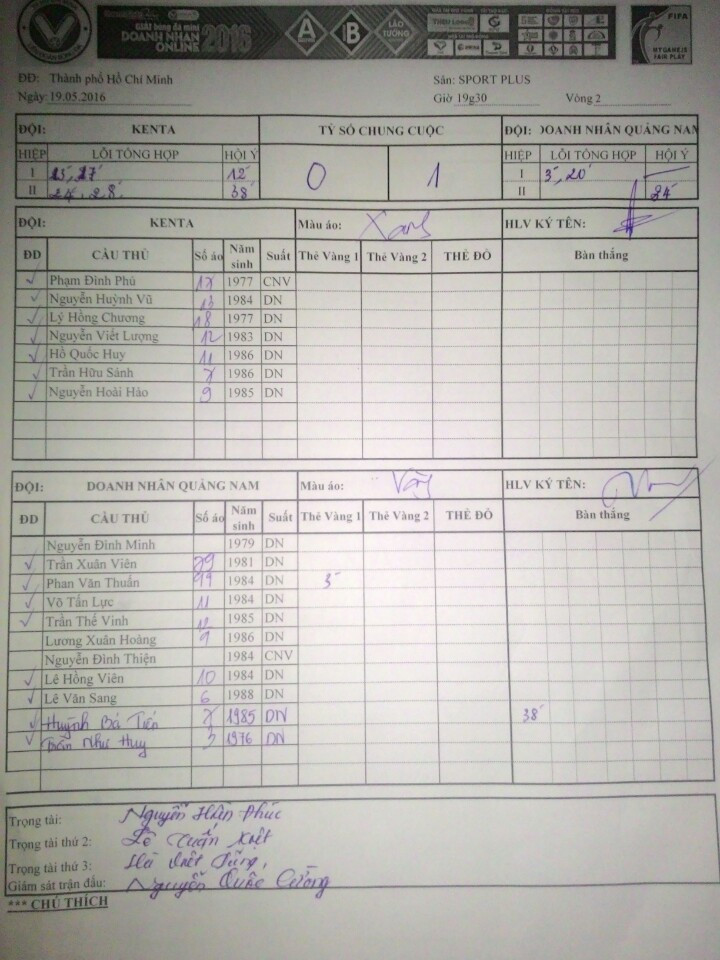 GIẢI bóng đá mini
DOANH NHÂN
ONLINE 2016
A B LÃO TƯỚNG
FIFA
MY GAME IS
FAIR PLAY
ĐĐ: Thành phố Hồ Chí Minh Sân: SPORT PLUS
Ngày: 19.05.2016 Giờ 19g30 Vòng 2
ĐỘI: KENTA TỶ SỐ CHUNG CUỘC ĐỘI: DOANH NHÂN QUẢNG NAM
HIỆP LỖI TỔNG HỢP HỘI Ý 0 1 HIỆP LỖI TỔNG HỢP HỘI Ý
I 12' I 3', 20'
II 24', 28' 38' II
ĐỘI: KENTA Màu áo: Xanh HLV KÝ TÊN:
ĐD CẦU THỦ Số áo Năm sinh Suất Thẻ Vàng 1 Thẻ Vàng 2 THẺ ĐỎ Bàn thắng
Phạm Đình Phú 1977 CNV
Nguyễn Huỳnh Vũ 13 1984 DN
Lý Hồng Chương 18 1977 DN
Nguyễn Viết Lượng 12 1983 DN
Hồ Quốc Huy 11 1986 DN
Trần Hữu Sánh 7 1986 DN
Nguyễn Hoài Hảo 9 1985 DN
ĐỘI: DOANH NHÂN QUẢNG NAM Màu áo: Vàng HLV KÝ TÊN:
ĐD CẦU THỦ Số áo Năm sinh Suất Thẻ Vàng 1 Thẻ Vàng 2 THẺ ĐỎ Bàn thắng
Nguyễn Đình Minh 1979 DN
Trần Xuân Viên 1981 DN
Phan Văn Thuấn 99 1984 DN 3'
Võ Tấn Lực 11 1984 DN
Trần Thế Vinh 12 1985 DN
Lương Xuân Hoàng 9 1986 DN
Nguyễn Đình Thiện 1984 CNV
Lê Hồng Viên 10 1984 DN
Lê Văn Sang 6 1988 DN
Huỳnh Bá Tiến 7 1985 DN 38'
Trần Như Huy 3 1976 DN
Trọng tài: Nguyễn Phúc
Trọng tài thứ 2: Lê Tuấn Kiệt
Trọng tài thứ 3: Dũng
Giám sát trận đấu: Nguyễn Quốc Cường
*** CHÚ THÍCH